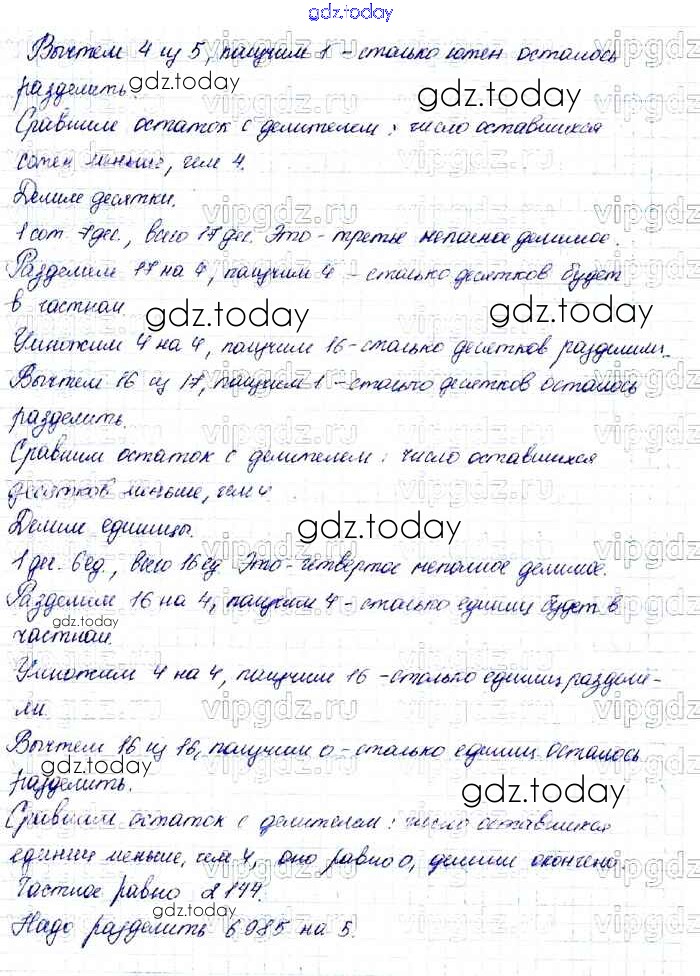 gdz.today
Вычтем 4 из 5, получим 1 - столько сотен осталось
разделить.
Сравним остаток с делителем: число оставшихся
сотен меньше, чем 4.
Делим десятки.
1 сот. 7 дес., всего 17 дес. Это - третье неполное делимое.
Разделим 17 на 4, получим 4 - столько десятков будет
в частном
Умножим 4 на 4, получим 16 - столько десятков разделили.
Вычтем 16 из 17, получим 1 - столько десятков осталось
разделить.
Сравним остаток с делителем: число оставшихся
десятков меньше, чем 4
Делим единицы.
1 дес. 6 ед., всего 16 ед. Это - четвертое неполное делимое.
Разделим 16 на 4, получим 4 - столько единиц будет в
частном
Умножим 4 на 4, получим 16 - столько единиц раздели-
ли.
Вычтем 16 из 16, получим 0 - столько единиц осталось
разделить.
Сравним остаток с делителем: число оставшихся
единиц меньше, чем 4, оно равно 0, деление окончено.
Частное равно 2144.
Надо разделить 6985 на 5.